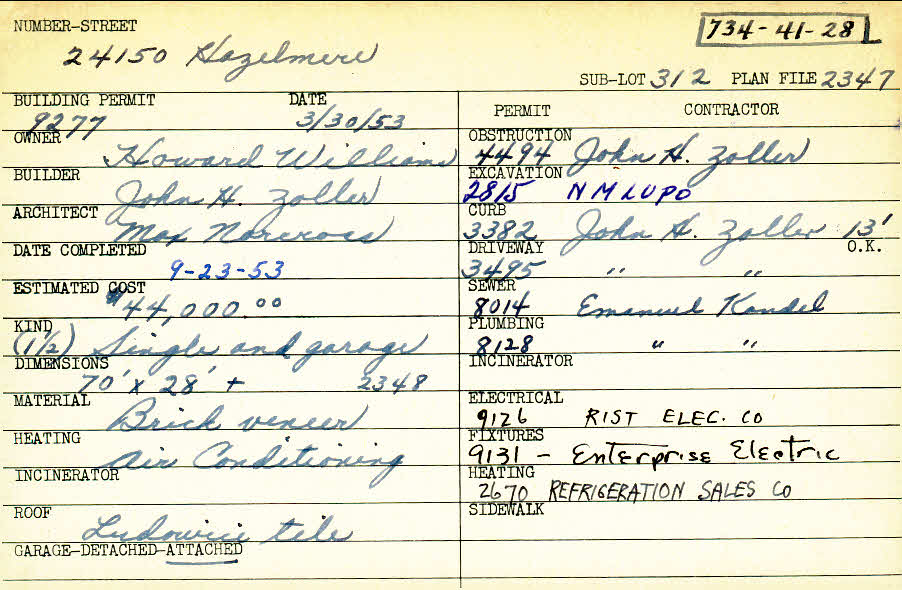 NUMBER-STREET
734-41-28
24150 Hazelmere
SUB-LOT 312 PLAN FILE 2347
BUILDING PERMIT DATE
9277 3/30/53
OWNER
Howard Williams
BUILDER
John H. Zoller
ARCHITECT
Max Norcross
DATE COMPLETED
9-23-53
ESTIMATED COST
$44,000.00
KIND
(1 1/2) Single and garage
DIMENSIONS
70' x 28' + 2348
MATERIAL
Brick veneer
HEATING
Air Conditioning
INCINERATOR
ROOF
Ludowici tile
GARAGE-DETACHED-ATTACHED
PERMIT CONTRACTOR
OBSTRUCTION
4494 John H. Zoller
EXCAVATION
2815 N M LUPO
CURB
3382 John H. Zoller 13'
DRIVEWAY O.K.
3495 " "
SEWER
8014 Emanuel Kandel
PLUMBING
8128 " "
INCINERATOR
ELECTRICAL
9126 RIST ELEC. CO
FIXTURES
9131 - Enterprise Electric
HEATING
2670 REFRIGERATION SALES CO
SIDEWALK